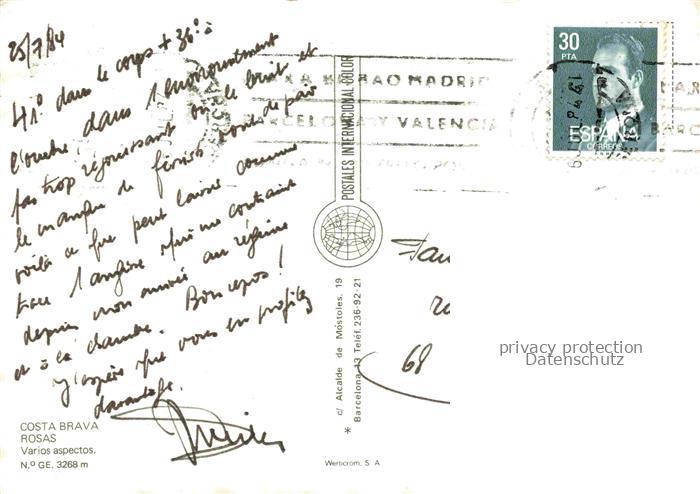 25/7/84
41° dans le corps + 36° à
l'ombre, dans l'environnement
pas trop réjouissant où le bruit et
le manque de font de pair
voilà ce que peut laisser comme
trace l'angine qui me contraint
depuis mon arrivée au régime
et à la chambre. Bon repos !
J'espère que vous en profitez
davantage.
COSTA BRAVA
ROSAS
Varios aspectos.
N.º GE. 3268 m
POSTALES INTERNACIONAL COLOR
c/ Alcalde de Móstoles, 19
Barcelona-13 Teléf. 236-92-21
*
Werticrom, S. A
30
PTA
ESPAÑA
CORREOS
BILBAO MADRID
BARCELONA Y VALENCIA
68
privacy protection
Datenschutz